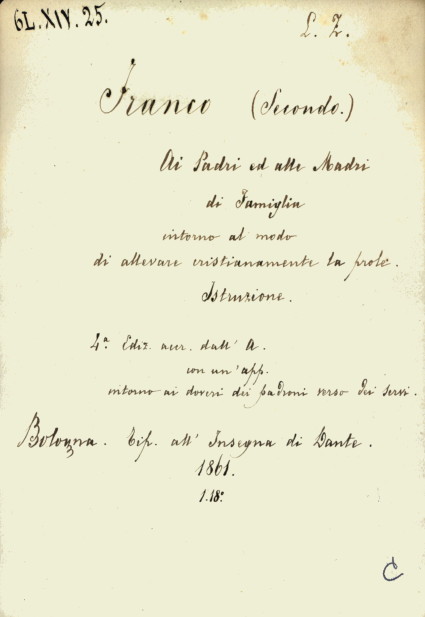 6L.XIV.25.
L. Z.
Franco (Secondo.)
Ai Padri ed alle Madri
di Famiglia
intorno al modo
di allevare cristianamente la prole.
Istruzione.
4ª Ediz. acr. dall' A.
con un' app.
intorno ai doveri dei padroni verso dei servi.
Bologna. Tip. all' Insegna di Dante.
1861.
1.18º
C